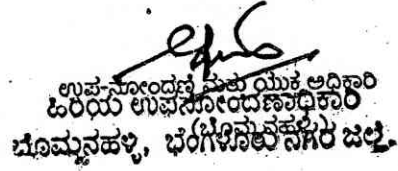 ಉಪ-ನೋಂದಣಿ ಮತ್ತು ಯುಕ್ತ ಅಧಿಕಾರಿ
ಹಿರಿಯ ಉಪನೋಂದಣಾಧಿಕಾರಿ
ಬೊಮ್ಮನಹಳ್ಳಿ, ಬೆಂಗಳೂರು ನಗರ ಜಿಲ್ಲೆ.